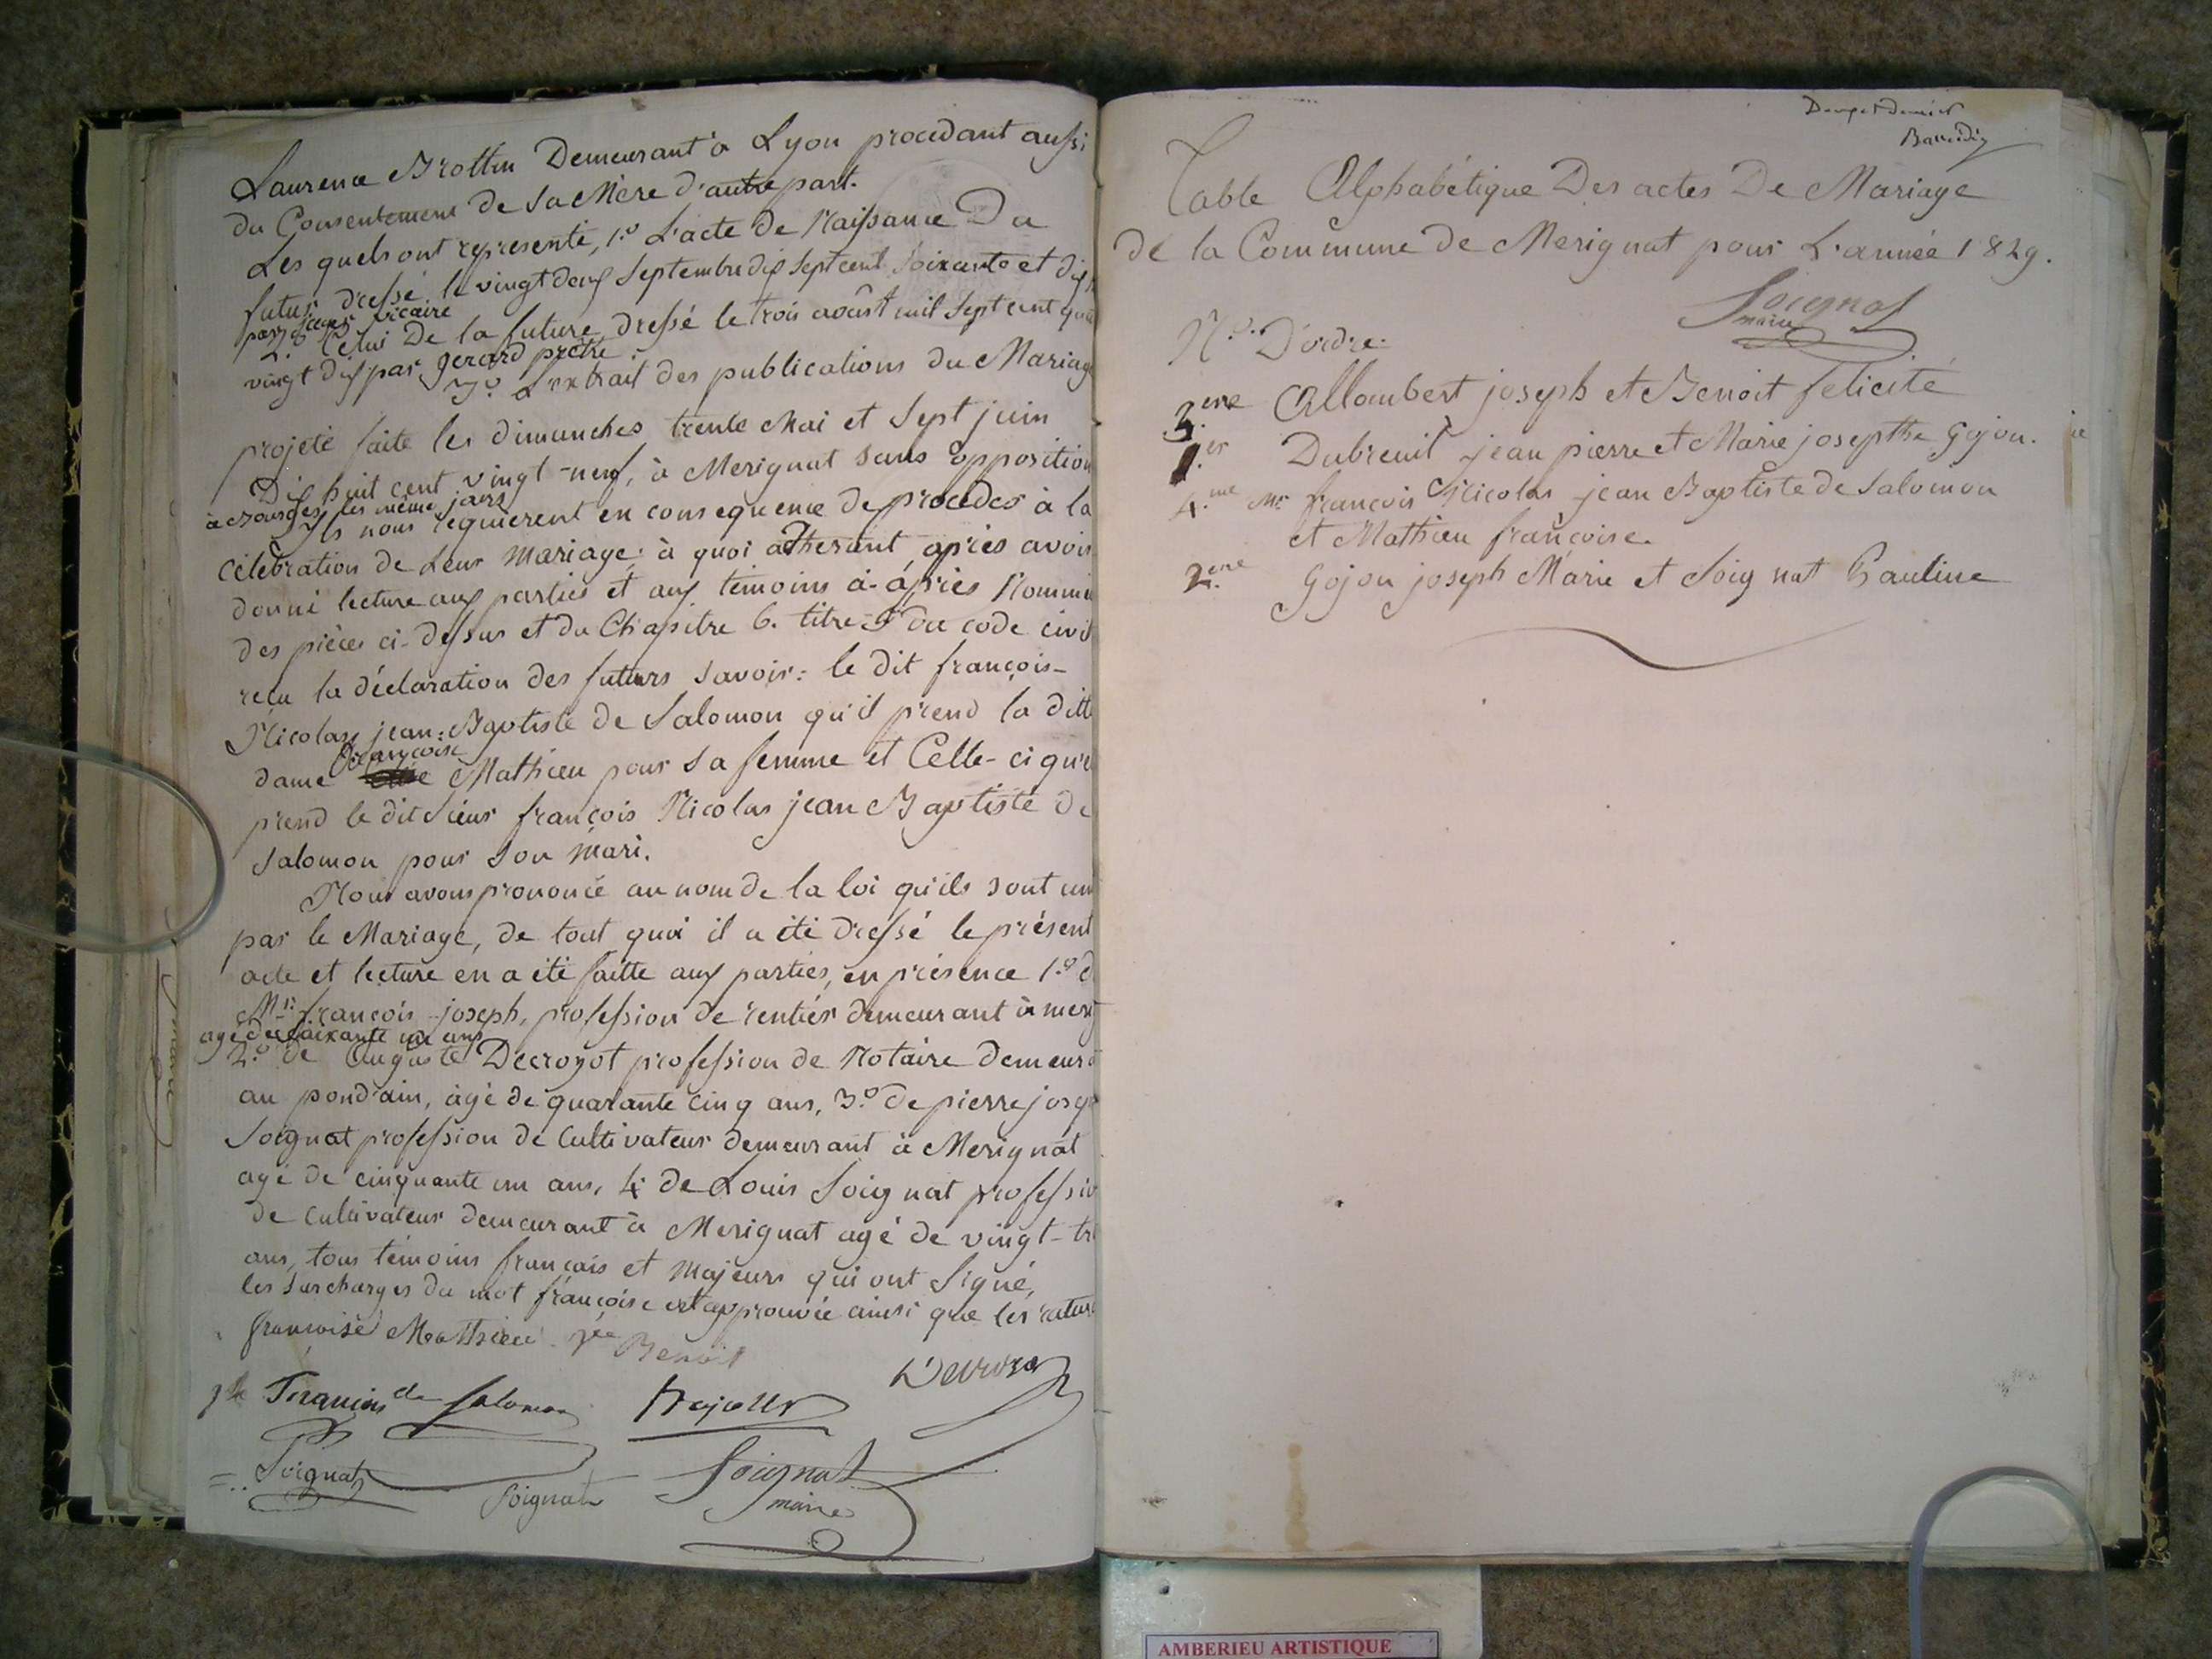 Laurence Brottin Demeurant à Lyon procedant aussi
du Consentement de sa Mère d'autre part.
Les quels ont representé, 1.o L'acte de Naissance Du
futur dressé le vingt deux Septembre dix sept cent soixante et dix
par vicaire
2.o Celui De la future dressé le trois août mil sept cent quatre
vingt dix par gerard prêtre
3.o L'extrait des publications du Mariage
projeté faite les dimanches trente Mai et Sept juin
Dix huit cent vingt-neuf, à Merignat sans opposition
les même jours
Ils nous requierent en consequence de proceder à la
célébration de Leur Mariage; à quoi adherant, après avoir
donné lecture aux parties et aux témoins ci-après Nommés
des pièces ci-dessus et du Chapitre 6. titre 5 du code civil
reçu la déclaration des futurs savoir: le dit françois-
Nicolas jean-Baptiste de Salomon qu'il prend la ditte
françoise
dame Mathieu pour sa femme et Celle-ci qu'elle
prend le dit Sieur françois Nicolas jean Baptiste de
Salomon pour son mari.
Nous avons prononcé au nom de la loi qu'ils sont unis
par le Mariage, de tout quoi il a été dressé le présent
acte et lecture en a été faitte aux parties, en présence 1.o de
Mr. françois joseph, profession de rentier demeurant à merig
agé de soixante un ans
2.o de Auguste Decrozot profession de Notaire demeurant
au pond'ain, âgé de quarante cinq ans, 3.o de pierre joseph
Soignat profession de Cultivateur demeurant à Merignat
agé de cinquante un ans, 4. de Louis Soignat profession
de cultivateur demeurant à Merignat agé de vingt-tr
ans, tous témoins français et Majeurs qui ont signé,
les surcharges du mot françoise est approuvée ainsi que les ratures
françoise Mathieu Benoit
françois de Salomon
Soignat Soignat Soignat
maire
Table Alphabétique Des actes De Mariage
de la Commune de Merignat pour L'année 1829.
Soignat
maire
N.o D'ordre.
3.eme Allombert joseph et Benoit felicité
1.er Dubreuil jean pierre et Marie josepthe Gojon.
4.me Mr. françois Nicolas jean Baptiste de Salomon
et Mathieu françoise.
2.eme Gojon joseph Marie et Soignat Pauline
AMBERIEU ARTISTIQUE